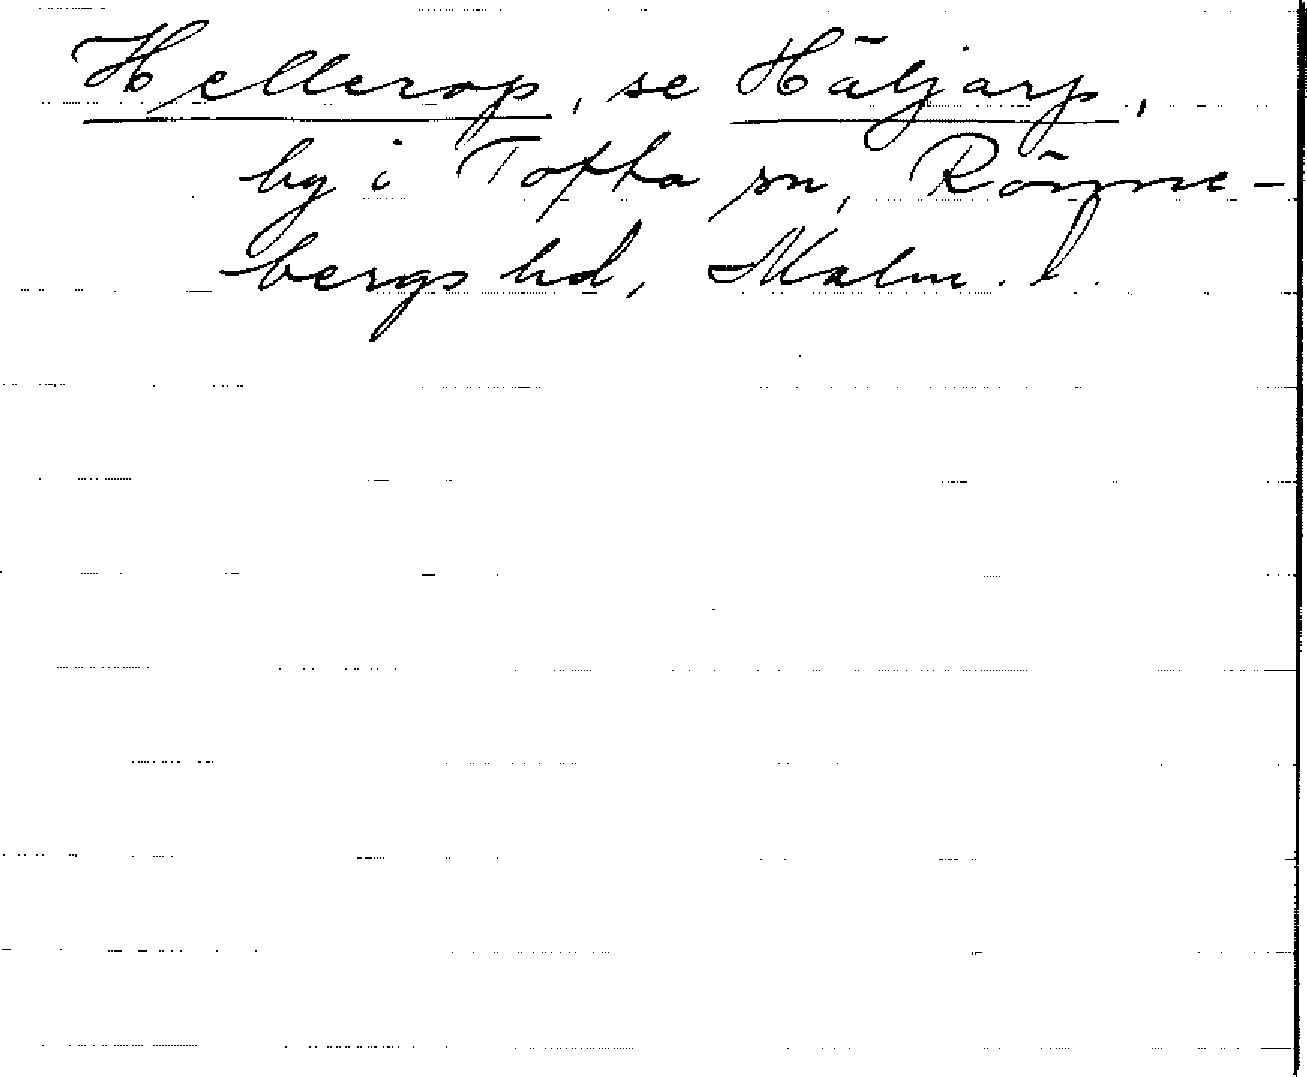 Hellerop, se Häljarp,
by i Tofta sn, Rönne-
bergs hd, Malm. l.